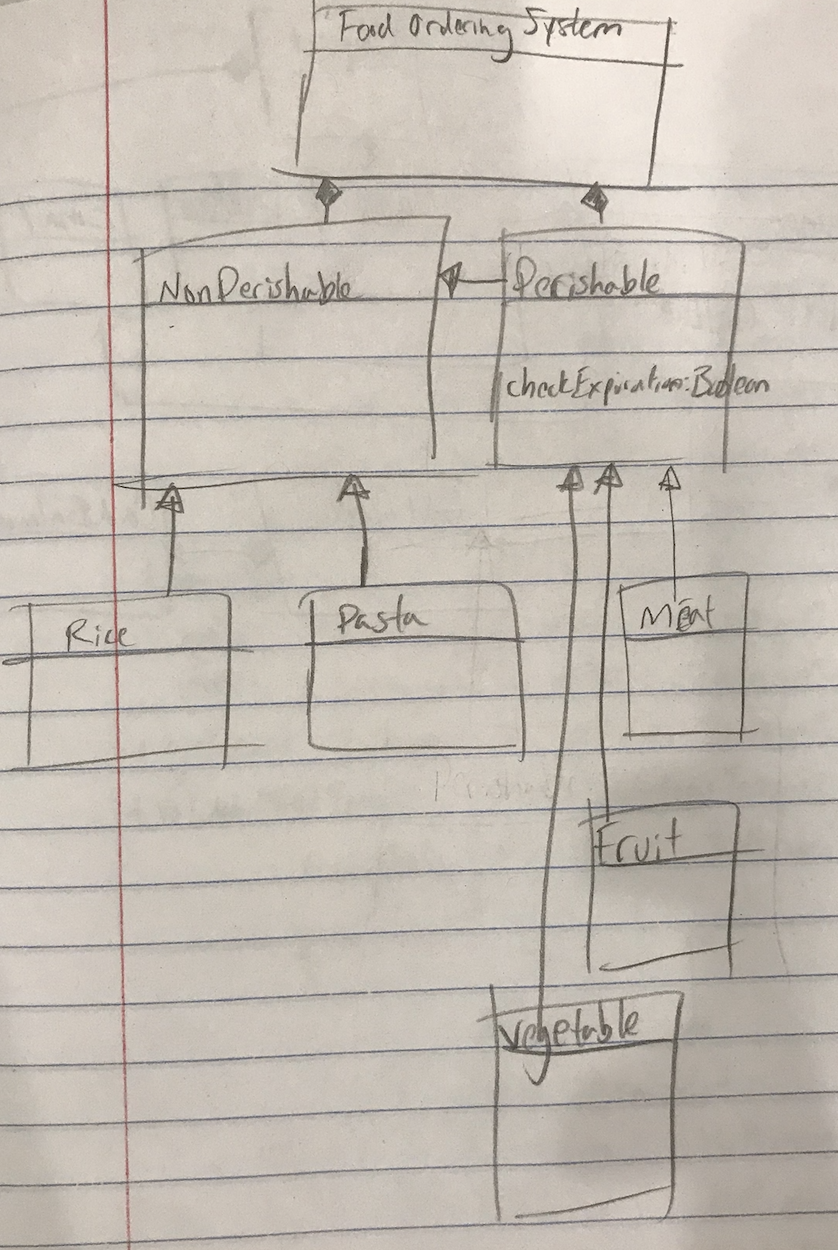 Food Ordering System
NonPerishable
Perishable
checkExpiration:Boolean
Rice
Pasta
Meat
Fruit
Vegetable